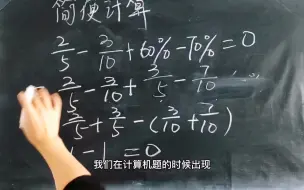 简便计算
2/5 - 3/10 + 60% - 70% = 0
2/5 - 3/10 + 3/5 - 7/10
2/5 + 3/5 - (3/10 + 7/10)
1 - 1 = 0
我们在计算机题的时候出现